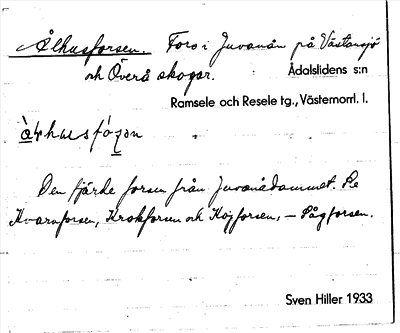 Ålhusforsen. Fors i Juvanån på Västansjö
och Överå skogar. Ådalslidens s:n
Ramsele och Resele tg., Västernorrl. l.
Den fjärde forsen från Juvanådammet. Se
Kvarnforsen, Krokforsen och Kojforsen, – Sågforsen.
Sven Hiller 1933